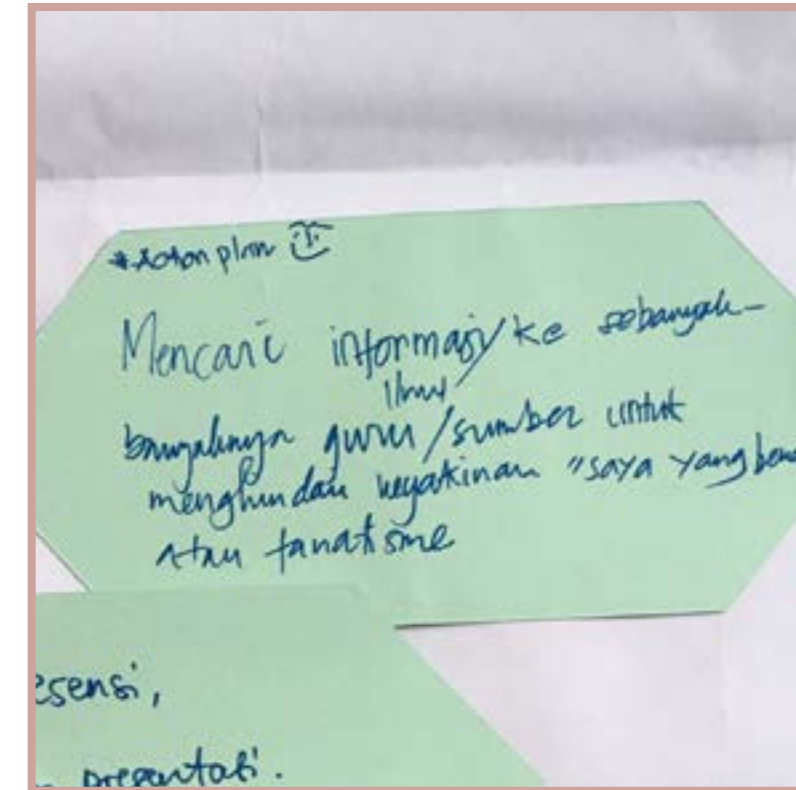 *Action plan
Mencari informasi/ke sebanyak-
ilmu
banyaknya guru/sumber untuk
menghindari keyakinan "saya yang
atau fanatisme
esensi,
presentasi.